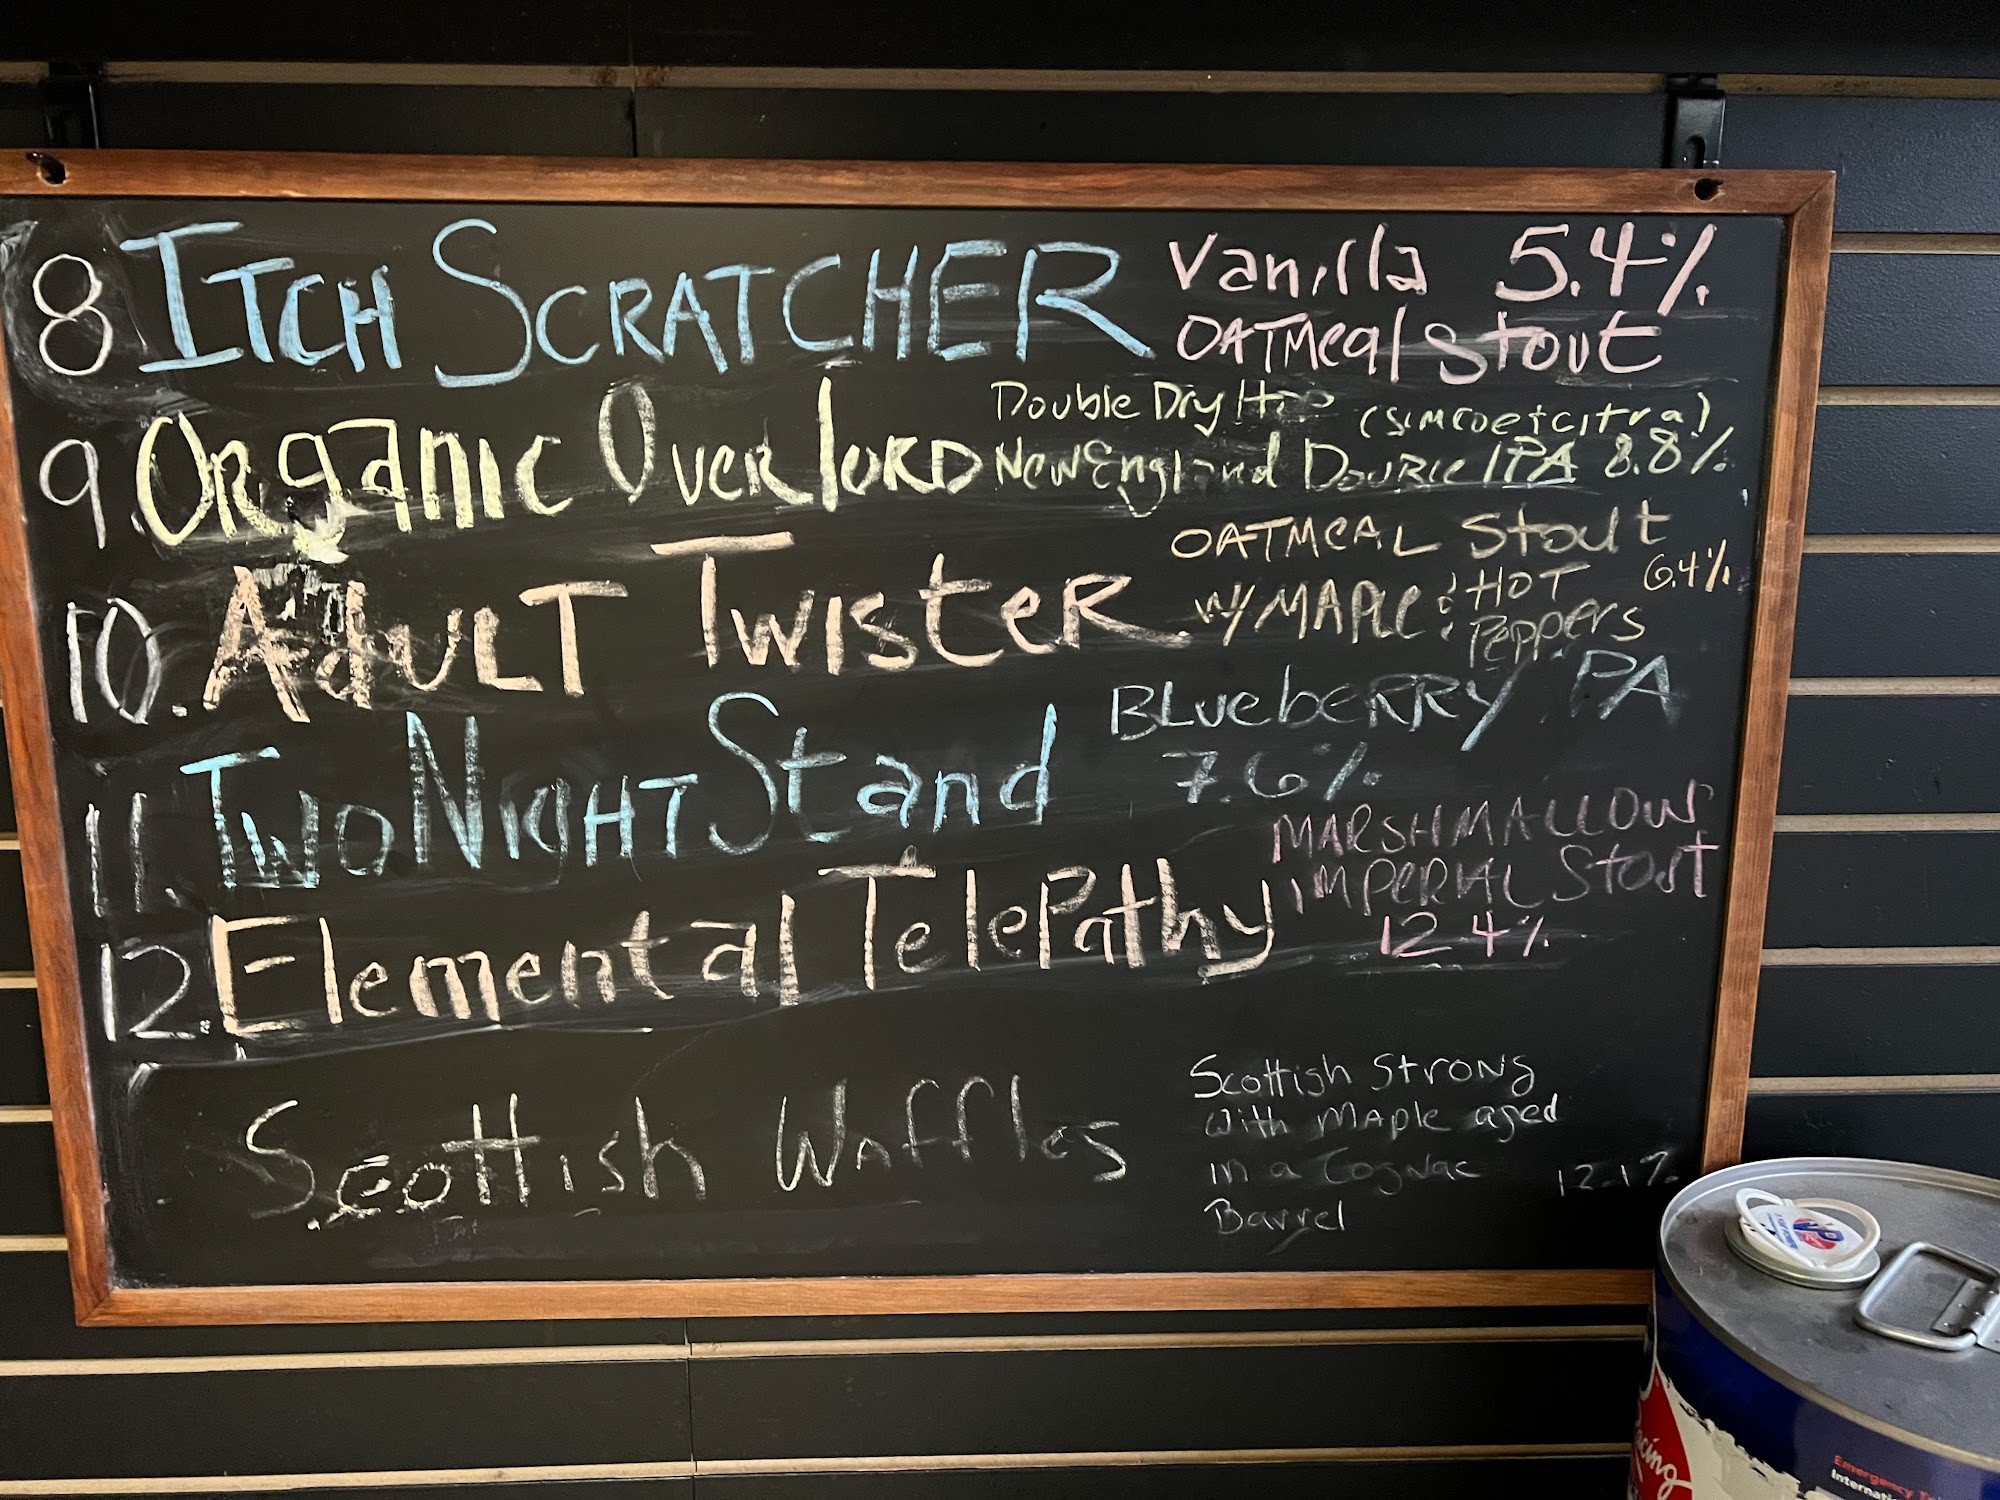 8 ITCH SCRATCHER Vanilla 5.4%
OATMeal Stout
9. ORganic Overlord Double Dry Hop (simcoe + citra)
New England Double IPA 8.8%
10. AdULT TwisteR OATMeAL Stout
w/ MAPle & HOT Peppers 6.4%
11. Two NigHT Stand BLueberRRY PA
7.6%
12. Elemental TelePathy MARSHMALLOW
IMPERIAL Stout
12.4%
Scottish Waffles Scottish Strong
with MAPle aged
in a Cognac
Barrel 12.1%
Emergency
Internati